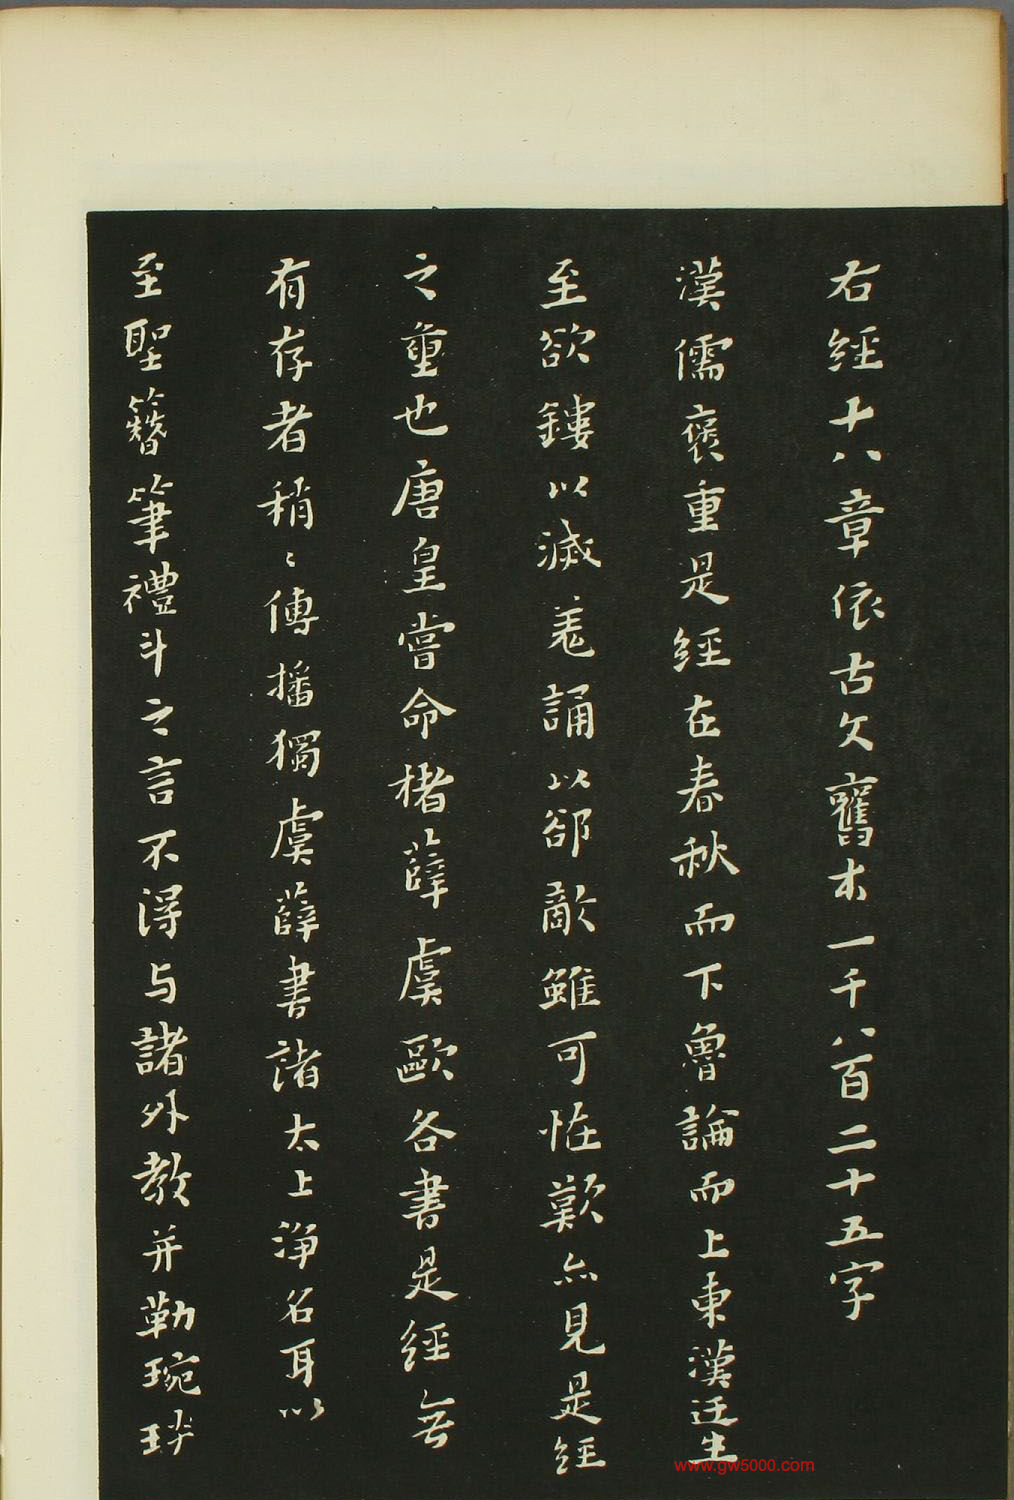 右經十八章依古文舊本一千八百二十五字
漢儒褒重是經在春秋而下魯論而上東漢迂生
至欲鏤以滅羗誦以郤敵雖可恠歎亦見是經
之重也唐皇嘗命褚薛虞歐各書是經無
有存者稍〻傳播獨虞薛書諸太上淨名耳以
至聖簪筆禮斗之言不得与諸外教并勒琬琰
www.gw5000.com